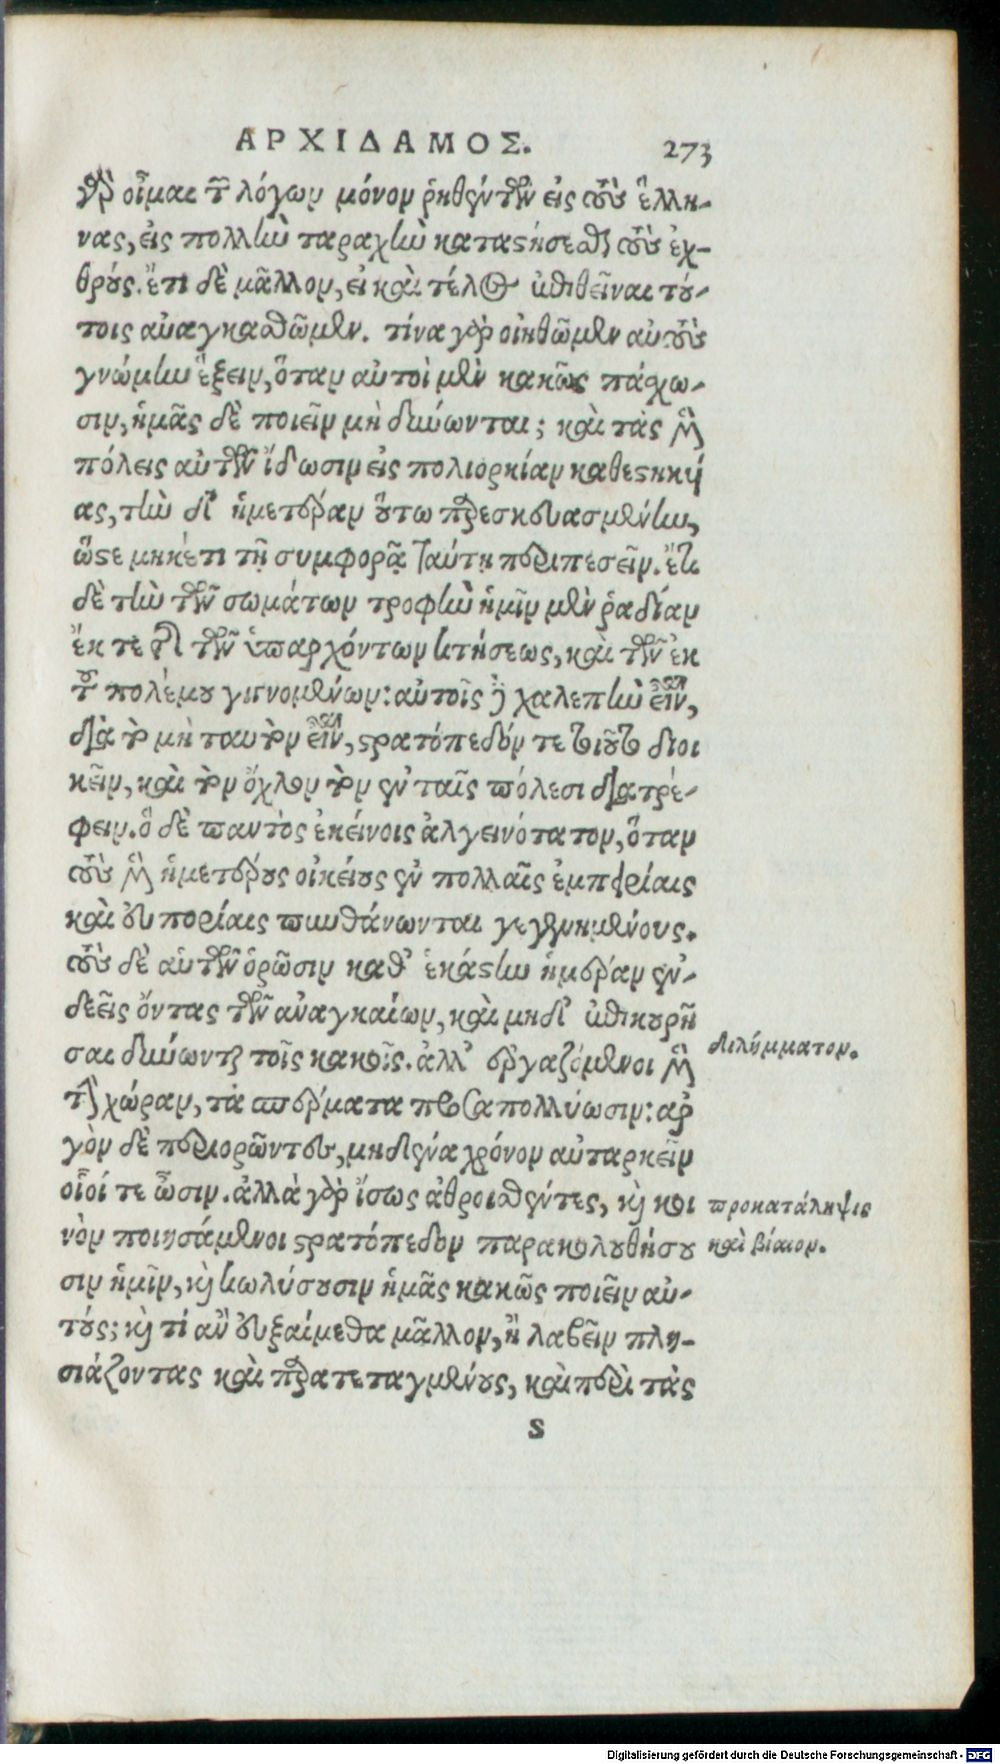 ΑΡΧΙΔΑΜΟΣ. 273
γὰρ οἶμαι τ̃ λόγων μόνον ῥηθέντων εἰς τοὺς ἕλλη-
νας, εἰς πολλὴν ταραχὴν καταστήσεσθαι τοὺς ἐχ-
θρούς. ἔτι δὲ μᾶλλον, εἰ καὶ τέλος ἐπιθεῖναι τού-
τοις ἀναγκασθῶμεν. τίνα γὰρ οἰηθῶμεν αὐτοὺς
γνώμην ἕξειν, ὅταν αὐτοὶ μὲν κακῶς πάσχω-
σιν, ἡμᾶς δὲ ποιεῖν μὴ δύνωνται; καὶ τὰς μὲν
πόλεις αὑτῶν ἴδωσιν εἰς πολιορκίαν καθεστηκυί
ας, τὴν δ' ἡμετέραν οὕτω παρεσκευασμένην,
ὥστε μηκέτι τῇ συμφορᾷ ταύτῃ περιπεσεῖν. ἔτι
δὲ τὴν τῶν σωμάτων τροφὴν ἡμῖν μὲν ῥαδίαν
ἔκ τε τῆς τῶν ὑπαρχόντων κτήσεως, καὶ τῶν ἐκ
τοῦ πολέμου γιγνομένων: αὐτοῖς δὲ χαλεπὴν εἶναι,
διὰ τὸ μὴ ταυτὸν εἶναι, στρατόπεδόν τε τοιοῦτο διοι
κεῖν, καὶ τὸν ὄχλον τὸν ἐν ταῖς πόλεσι διατρέ-
φειν. ὃ δὲ παντὸς ἐκείνοις ἀλγεινότατον, ὅταν
τοὺς μὲν ἡμετέρους οἰκείους ἐν πολλαῖς ἐμπειρίαις
καὶ εὐπορίαις πυνθάνωνται γεγενημένους.
τοὺς δὲ αὑτῶν ὁρῶσιν καθ' ἑκάστην ἡμέραν ἐν-
δεεῖς ὄντας τῶν ἀναγκαίων, καὶ μηδ' ἐπικουρῆ
σαι δύνωνται τοῖς κακοῖς. ἀλλ' ἐργαζόμενοι μὲν
τὴν χώραν, τὰ σπέρματα προσαπολλύωσιν: ἀρ
γὸν δὲ περιορῶντες, μηδένα χρόνον αὐταρκεῖν
οἷοί τε ὦσιν. ἀλλὰ γὰρ ἴσως ἀθροισθέντες, καὶ κοι
νὸν ποιησάμενοι στρατόπεδον παρακολουθήσου
σιν ἡμῖν, καὶ κωλύσουσιν ἡμᾶς κακῶς ποιεῖν αὐ-
τούς; καὶ τί ἂν εὐξαίμεθα μᾶλλον, ἢ λαβεῖν πλη-
σιάζοντας καὶ παρατεταγμένους, καὶ περὶ τὰς
S
διλήμματον.
προκατάληψις
καὶ βίαιον.
Digitalisierung gefördert durch die Deutsche Forschungsgemeinschaft - DFG